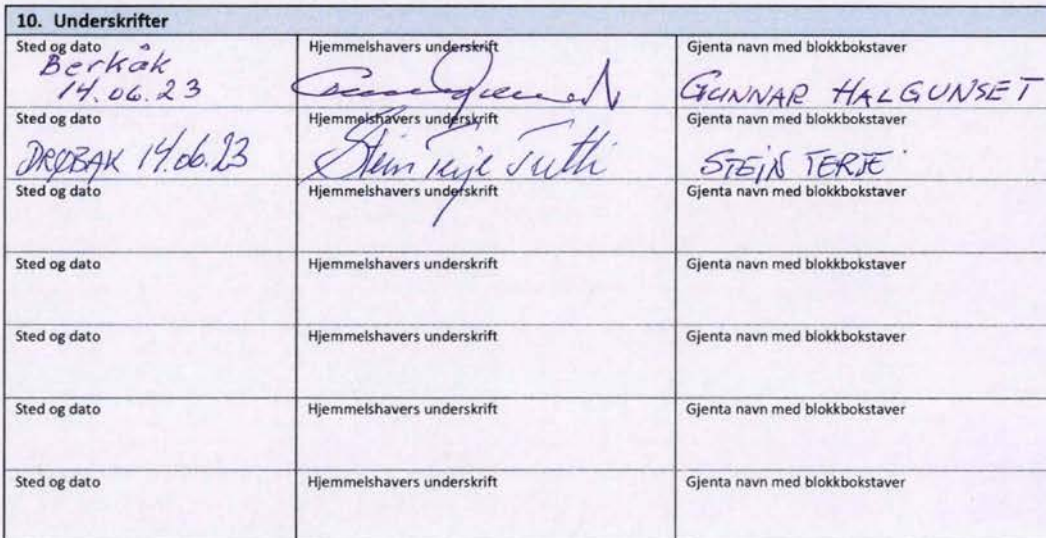 10. Underskrifter
Sted og dato
Hjemmelshavers underskrift
Gjenta navn med blokkbokstaver
Berkåk
14.06.23
GUNNAR HALGUNSET
Sted og dato
Hjemmelshavers underskrift
Gjenta navn med blokkbokstaver
DRØBAK 14.06.23
Stein Terje
STEIN TERJE
Sted og dato
Hjemmelshavers underskrift
Gjenta navn med blokkbokstaver
Sted og dato
Hjemmelshavers underskrift
Gjenta navn med blokkbokstaver
Sted og dato
Hjemmelshavers underskrift
Gjenta navn med blokkbokstaver
Sted og dato
Hjemmelshavers underskrift
Gjenta navn med blokkbokstaver
Sted og dato
Hjemmelshavers underskrift
Gjenta navn med blokkbokstaver